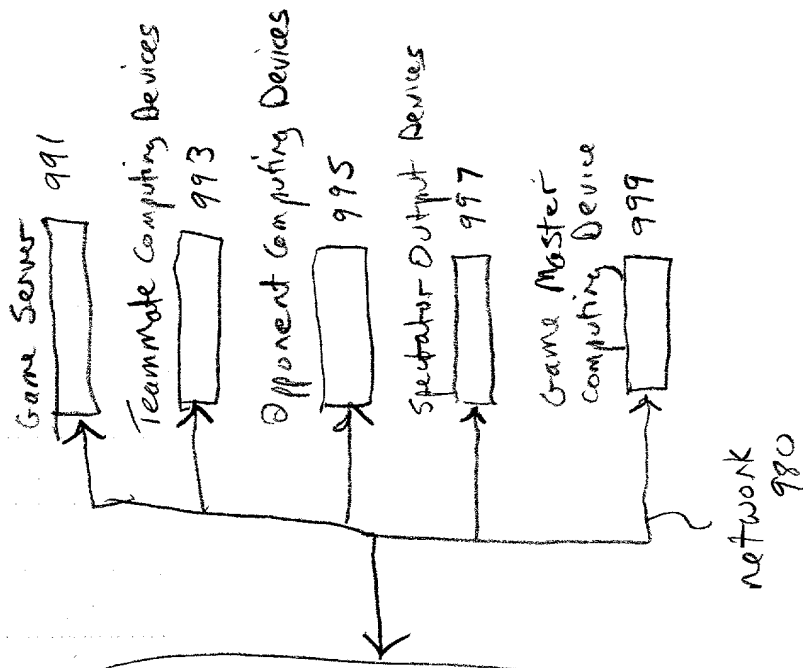 Game Server
991
Teammate Computing Devices
993
Opponent Computing Devices
995
Spectator Output Devices
997
Game Master
Computing Device
999
network
980